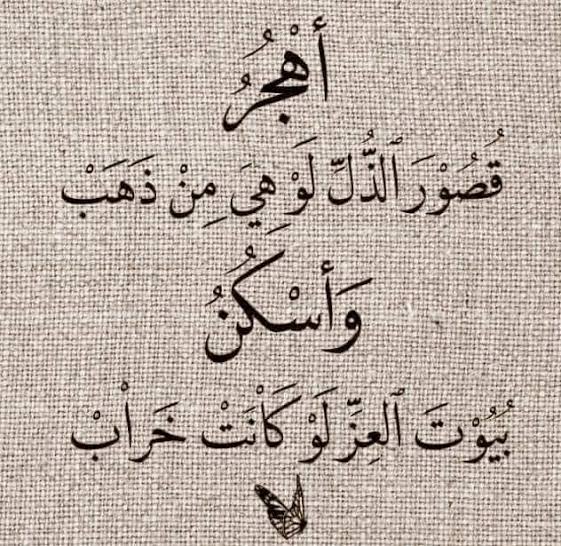 أَهْجُرُ
قُصُوْرَ ٱلذُّلِّ لَوْ هِيَ مِنْ ذَهَبْ
وَأسْكُنُ
بُيُوْتَ ٱلعِزِّ لَوْ كَاْنَتْ خَرَاْبْ